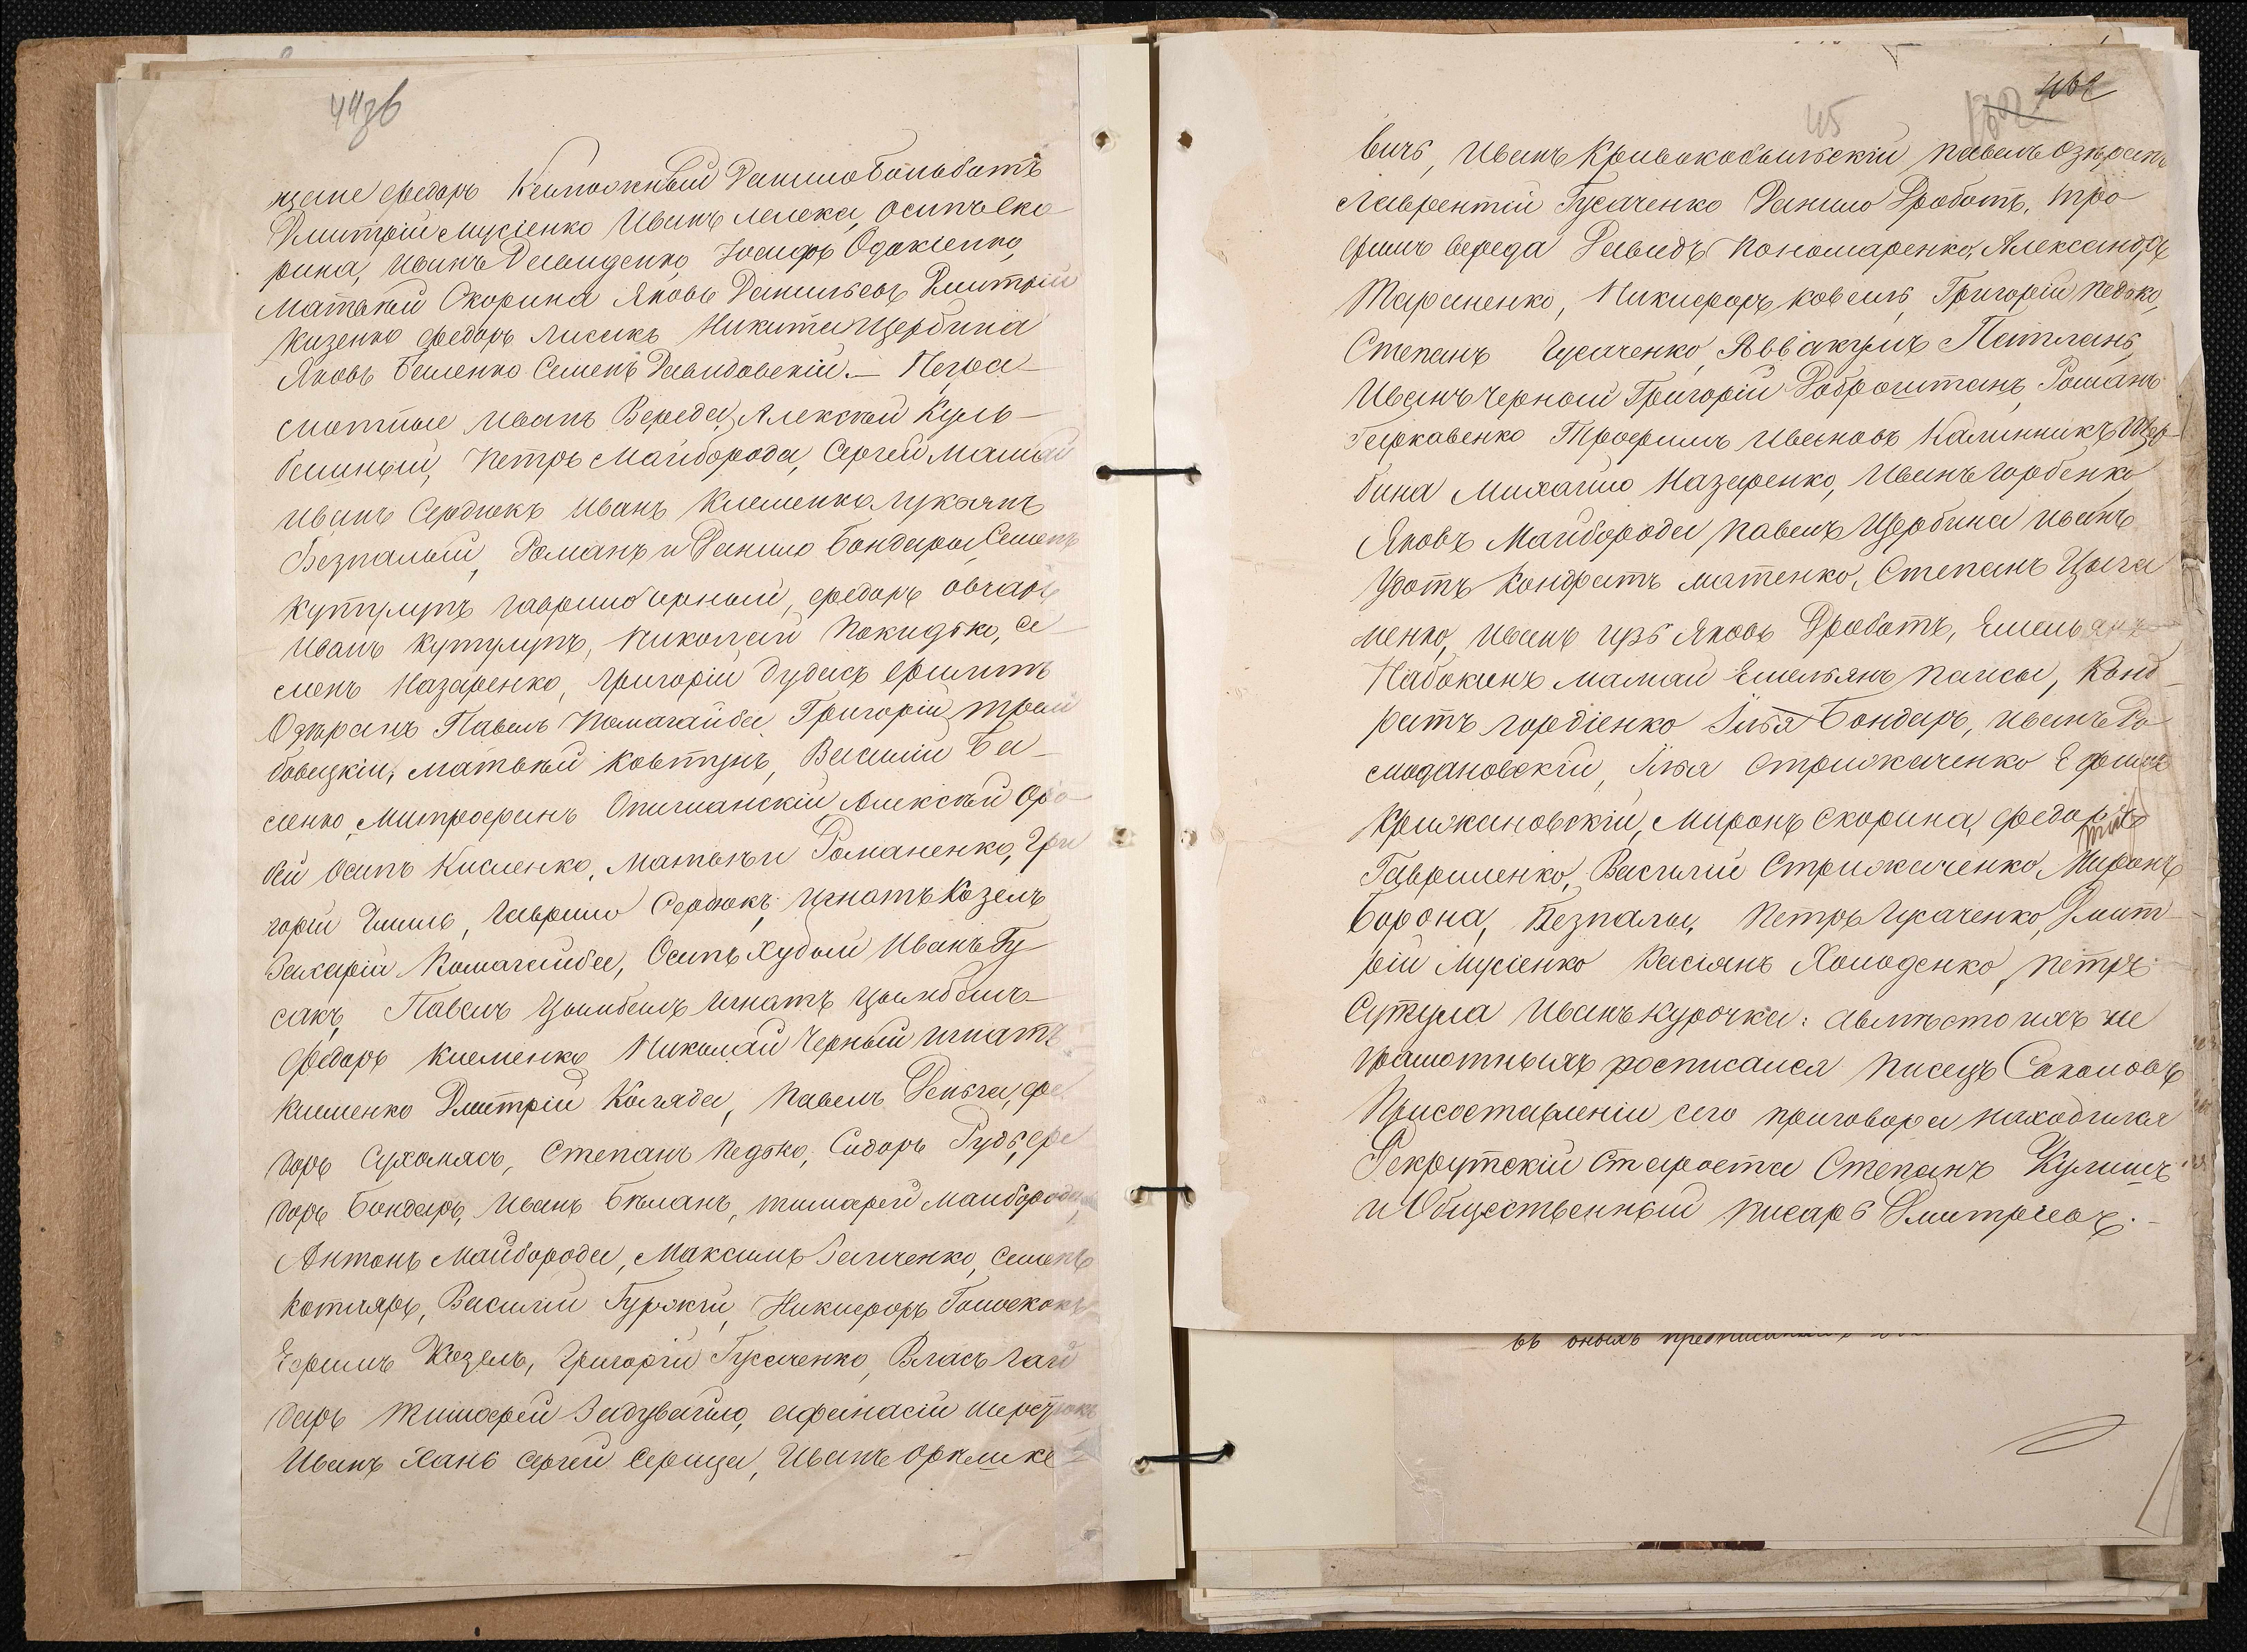 44зв
щане Федоръ Калюжный Данило Больботъ
Дмитрій Мусіенко Иванъ Лелека, Осипъ Ско-
рина, Иванъ Давиденко, Іосифъ Одокіенко,
Матвѣй Скорина Яковъ Данильевъ Дмитрій
Кизенко Федоръ Лисакъ Никита Щербина
Яковъ Беленко Семенъ Давидовскій. — Негра-
мотные Иванъ Вереда, Алексѣй Куль-
башный, Петръ Майборода, Сергей Мамай
Иванъ Сердюкъ Иванъ Клеменко Лукьянъ
Безпалый, Романъ и Данило Бондары, Семенъ
Кутулупъ Гаврило Чорный, Федоръ Овчаръ,
Иванъ Кутулупъ, Николай Покидько, Се-
менъ Назаренко, Григорій Дудась Филипъ
Озѣранъ Павелъ Помагайба Григорій Трем
бовецкій, Матвѣй Ковтунъ, Василій Ба-
сенко, Митрофанъ Опишнанскій Алексѣй Оро-
бей Осипъ Кисленко, Матвѣй Романенко, Гри
горій Чмиль, Гаврило Сердюкъ Игнатъ Козелъ
Захарій Помагайба, Осипъ Худый Иванъ Гу-
сакъ, Павелъ Цымбалъ Игнатъ Цымбалъ
Федоръ Клеменко Николай Черный Игнатъ
Клименко Дмитрій Коляда, Павелъ Деньга, Фе
доръ Сухомясъ, Степанъ Педько, Сидоръ Рудь, Фе
доръ Бондарь, Иванъ Бѣланъ, Тимофей Майборода,
Антонъ Майборода, Максимъ Галченко, Семенъ
Котляръ, Василій Гурскій, Никифоръ Голоскокъ
Ефимъ Козелъ, Григорій Гусаченко, Власъ Гай
даръ Тимофей Задувайло, Афанасій Шерстюкъ
Иванъ Хань Сергей Серица, Иванъ Орѣшке
45
вичь, Иванъ Кривокобыльскій Павелъ Озѣранъ
Лаврентій Гусаченко Данило Дроботъ, Тро-
фимъ Вереда Давидъ Пономаренко, Александръ
Тараненко, Никифоръ Ковель, Григорій Педько,
Степанъ Гусаченко, Аввакумъ Петлань,
Иванъ Черной Григорій Доброштанъ, Романъ
Гаркавенко Трофимъ Ивановъ Калинникъ Щер-
бина Михайло Назаренко, Иванъ Горбенко
Яковъ Майборода Павелъ Щербина Иванъ
Удотъ Кондратъ Матенко, Степанъ Цыга
ненко, Иванъ Яковъ Дроботъ, Емельянъ
Набокинъ Мамай Емельянъ Паисы, Конд-
ратъ Гордіенко Ілья Бондарь, Иванъ Ра
смодановскій, Ілья Стрижаченко Ефимъ
Крижановскій, Миронъ Скорина, Федоръ
Гавриленко, Василій Стрижаченко, Миронъ
Борона, Безпалы, Петръ Гусаченко, Дмит-
рій Мусіенко Касіянъ Холоденко, Петръ
Сутула Иванъ Курочка: авмѣсто ихъ не
грамотныхъ росписался писецъ Соколовъ
При составленіи сего приговора находился
Рекрутскій Староста Степанъ Кулишъ
и Общественный писарь Дмитріевъ. —
въ оныхъ